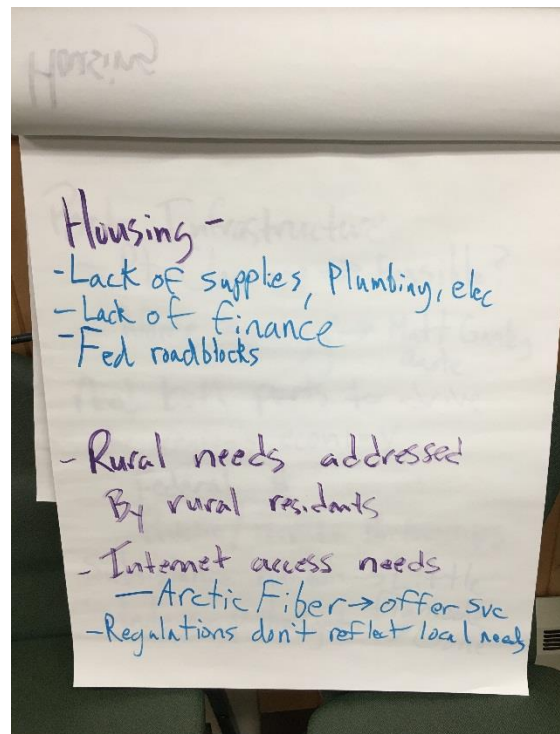 Housing
Housing -
- Lack of supplies, Plumbing, elec
- Lack of finance
- Fed roadblocks
- Rural needs addressed
By rural residants
- Internet access needs
- Arctic Fiber → offer svc
- Regulations don't reflect local needs